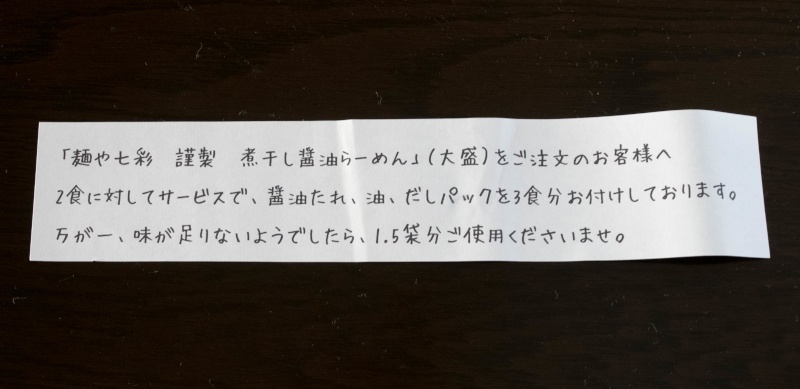 「麺や七彩　謹製　煮干し醤油らーめん」(大盛)をご注文のお客様へ
2食に対してサービスで、醤油たれ、油、だしパックを3食分お付けしております。
万が一、味が足りないようでしたら、1.5袋分ご使用くださいませ。